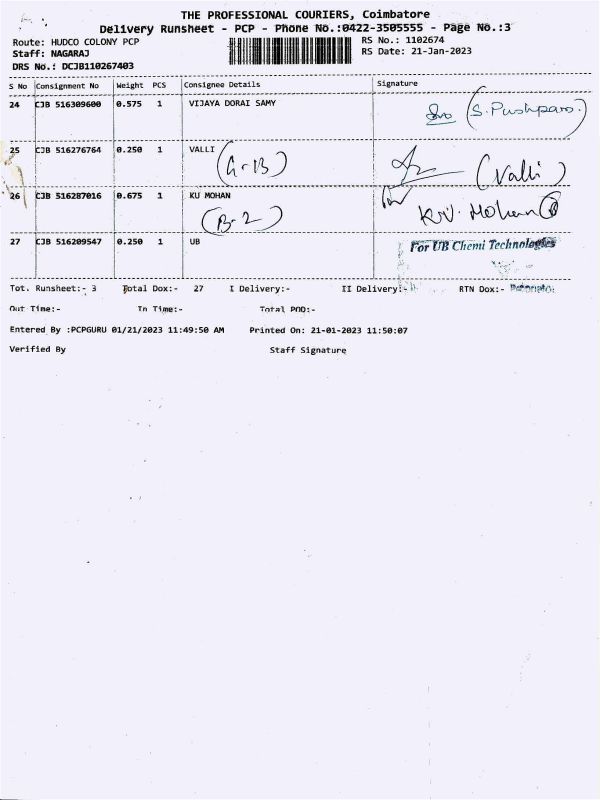 THE PROFESSIONAL COURIERS, Coimbatore
Delivery Runsheet - PCP - Phone No.:0422-3505555 - Page No.:3
Route: HUDCO COLONY PCP
RS No.: 1102674
Staff: NAGARAJ
RS Date: 21-Jan-2023
DRS No.: DCJB110267403
S No Consignment No Weight PCS Consignee Details Signature
24 CJB 516309600 0.575 1 VIJAYA DORAI SAMY (S. Pushparo.)
25 CJB 516276764 0.250 1 VALLI (Valli)
26 CJB 516287016 0.675 1 KU MOHAN K.V. Mohan
(B-2)
27 CJB 516209547 0.250 1 UB For UB Chemi Technologies
Tot. Runsheet:- 3 Total Dox:- 27 I Delivery:- II Delivery:- RTN Dox:-
Out Time:- In Time:- Total POD:-
Entered By :PCPGURU 01/21/2023 11:49:50 AM Printed On: 21-01-2023 11:50:07
Verified By Staff Signature